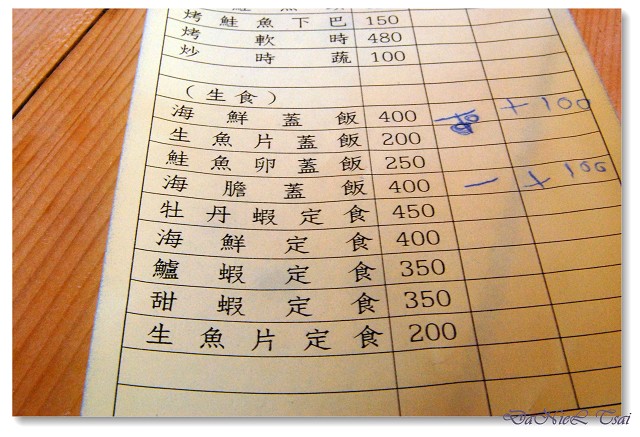 烤鮭魚下巴 150
烤軟時 480
炒時蔬 100
（生食）
海鮮蓋飯 400 + 100
生魚片蓋飯 200
鮭魚卵蓋飯 250
海膽蓋飯 400 一 + 100
牡丹蝦定食 450
海鮮定食 400
鱸蝦定食 350
甜蝦定食 350
生魚片定食 200
DaNieL Tsai